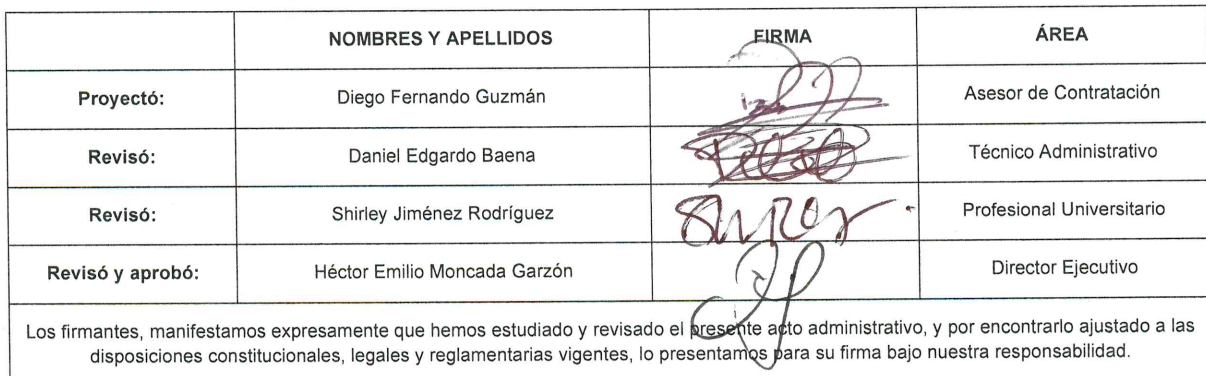 NOMBRES Y APELLIDOS FIRMA ÁREA
Proyectó: Diego Fernando Guzmán Asesor de Contratación
Revisó: Daniel Edgardo Baena Técnico Administrativo
Revisó: Shirley Jiménez Rodríguez Profesional Universitario
Revisó y aprobó: Héctor Emilio Moncada Garzón Director Ejecutivo
Los firmantes, manifestamos expresamente que hemos estudiado y revisado el presente acto administrativo, y por encontrarlo ajustado a las
disposiciones constitucionales, legales y reglamentarias vigentes, lo presentamos para su firma bajo nuestra responsabilidad.